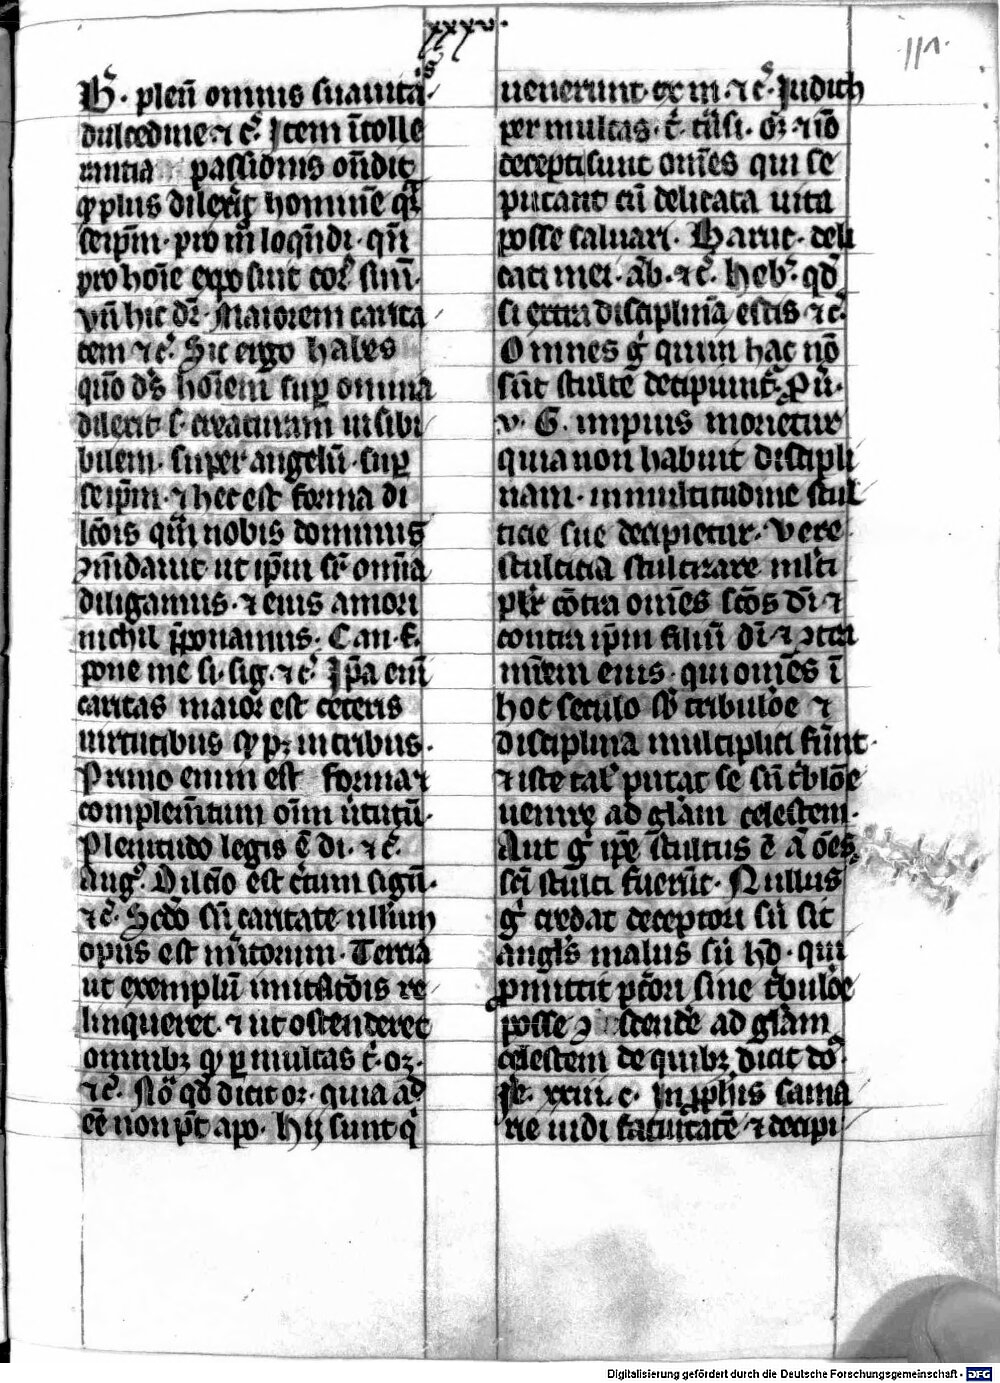 xxxv.
111.
B̅. plen̄ omnis suauita
dulcedine ⁊ c̄. Item ītolle
rantia passionis on̄dit
ꝙ plus dilexit hominē q̄
seip̄m. pro
pro hoīe exposuit corꝰ suū.
vn̄ hic dr̄. Maiorem carita
tem ⁊ c̄. Sic ergo habes
quō dn̄s hoīem sup̄ omnia
dilexit. s. creaturam uisibi
bilem. super angelū. sup̄
seip̄m. ⁊ hec est forma di
lc̄ōis quā nobis dominus
ꝯmādauit ut ip̄m sr̄ om̄ia
diligamus. ⁊ eius amori
nichil p̄ponamus. Can. F.
pone me si. sig. ⁊ c̄. Ip̄a em̄
caritas maior est ceteris
uirtutibus ꝙ pꝫ in tribus.
Primo enim est forma ⁊
complem̄tum oīm ūtutū.
Plenitudo legis ē di. ⁊ c̄.
Augꝰ. Dilc̄io est
⁊ c̄. Scd̄o sn̄ caritate nllium
opus est m̄itorium. Tercia
ut exemplū imitac̄ōis re
linqueret. ⁊ ut ostenderet
omnibꝫ ꝙ ꝑ multas t̄. oꝫ.
⁊ c̄. Nō qd̄ dicit oꝫ. quia ad
eē non pt̄ apo. hij sunt q̄
uenerunt. ex m. ⁊ c̄. Judith
per multas. t̄. oꝫ. ⁊ iō
decepti sunt om̄es qui se
putant cū delicata uita
posse saluari. Baruc. deli
cati mei. ab. ⁊ c̄. hebꝰ. qd̄
si extra disciplinā estis ⁊ c̄.
Omnes g̊ qui in hac nō
sūt stulte decipiunt.
v. G. impius morietur
quia non habuit discipli
nam. in multitudine stul
ticie sue decipietur. Vere
stulticia stultizare
contra om̄es scōs dī. ⁊
contra ip̄m filiū dī. ⁊ ꝯtra
mr̄em eius. qui om̄es ī
hoc seculo sb̄ tribulōe ⁊
disciplina multiplici fūnt.
⁊ iste talꝰ putat se sn̄ tb̄lōe
uenire ad glām celestem.
Aut g̊ ip̄e stultus ē ā oēs
scī stulti fuerūt. Nullus
g̊ credat deceptori sii sit
angls malus sii hō. qui
promittit pctōri sine tb̄ulōe
posse ꝯscendē ad glām
celestem de quibꝫ dicit
Je. xxiii. c. In ꝓphīs sama
rie uidi fatuitatē. ⁊ decipi
Digitalisierung gefördert durch die Deutsche Forschungsgemeinschaft - DFG